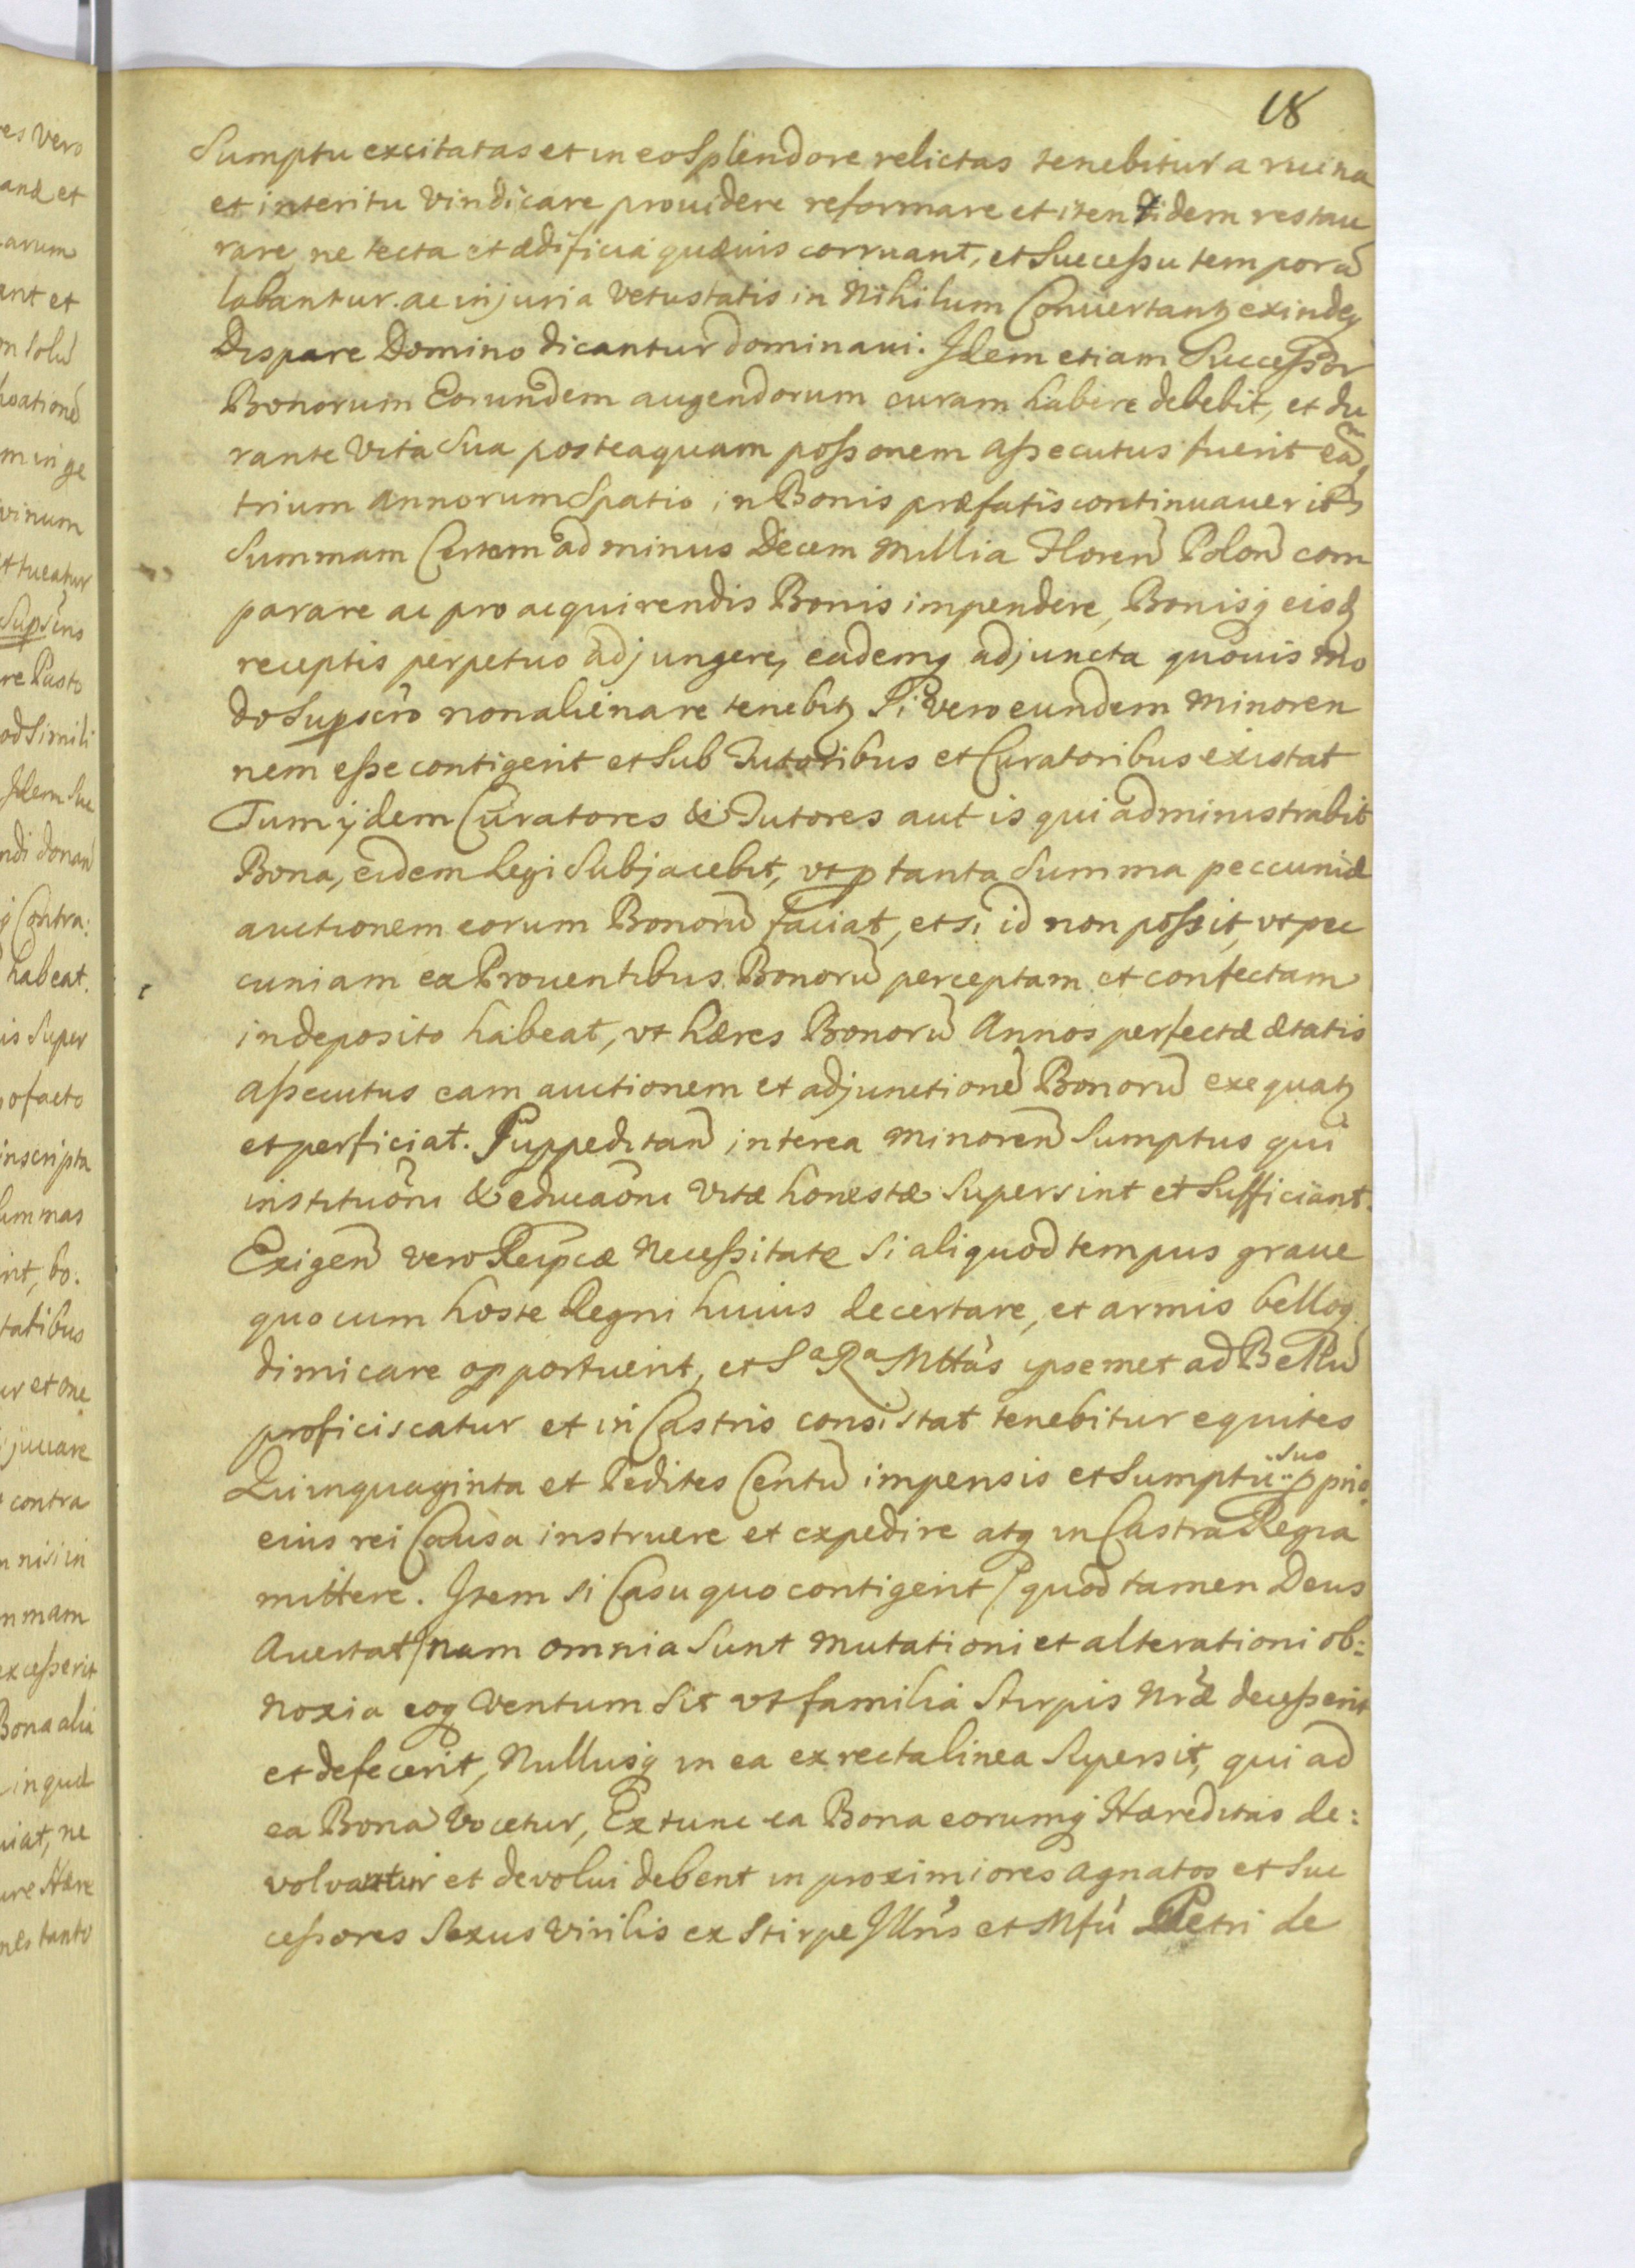 18
Sumptu excitatas et in eo Splendore relictas tenebitur a ruina
et interitu Vindicare prouidere reformare et iten tidem restau
rare ne tecta et ædificia quæuis corruant, et Successu temporũ
labantur ac injuria Vetustatis in Nihilum Conuertantꝫ exindeꝗ
Dispare Domino dicantur dominaui. Idem etiam Successor
Bonorum Eorundem augendorum curam habere debebit, et du
rante Vita Sua posteaquam possonem assecutus fuerit eamꝗ
trium annorum Spatio in Bonis præfatis continuauerit
Summam Certam ad minus Decem Millia Floren̄ Polon̄ com
parare ac pro acquirendis Bonis impendere, Bonisꝗ eisdꝫ
receptis perpetuo adjungere, eademꝗ adjuncta quouis mo
do Supscro non alienare tenebitꝫ Si Vero eundem minoren
nem esse contigerit et Sub Tutoribus et Curatoribus existat
Tum ijdem Curatores & Tutores aut is qui administrabit
Bona, eidem Legi Subjacebit, vt p tanta Summa peccuniæ
auctionem eorum Bonorũ faciat, et si id non possit, vt pec
cuniam ex Prouentibus Bonorũ perceptam et confectam
in deposito habeat, vt hæres Bonorũ Annos perfectæ ætatis
assecutus eam auctionem et adjunctionē Bonorũ exequatꝫ
et perficiat. Suppeditan̄ interea minoren̄ Sumptus qui
instituōni & educaōni Vitæ honestæ Supersint et Sufficiant.
Exigen̄ vero Reipcæ Necessitate Si aliquod tempus graue
quo cum hoste Regni huius decertare, et armis belloꝗ
dimicare opportuerit, et Sᵃ Rᵃ Mttas ipsemet ad Bellũ
proficiscatur et in Castris consistat tenebitur equites
Quinquaginta et Pedites Centũ impensis et Sumptu suo pprio
eius rei Causa instruere et expedire atꝗ in Castra Regia
mittere. Item si Casu quo contigerit (quod tamen Deus
Auertat) nam omnia Sunt Mutationi et alterationi ob:
noxia eoꝗ Ventum Sit vt familia Stirpis Nræ decesserit
et defecerit, Nullusꝗ in ea ex recta linea Supersit, qui ad
ea Bona Vocetur, Ex tunc ea Bona eorumꝗ Hæreditas de:
volvantur et devolui debent in proximiores Agnatos et Suc
cessores Sexus Virilis ex Stirpe Illris et Mfci Petri de